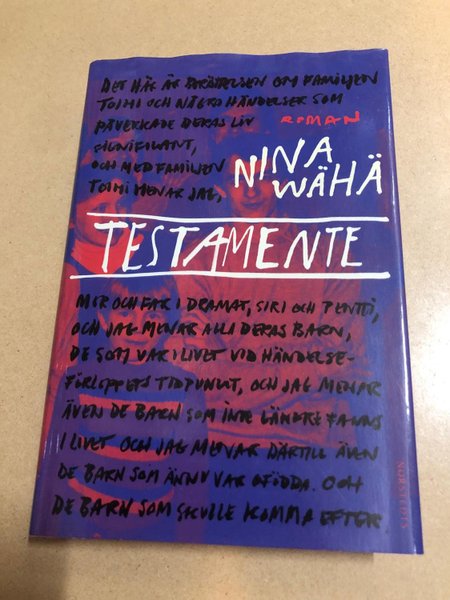 DET HÄR ÄR BERÄTTELSEN OM FAMILJEN
TOIMI OCH NÅGRA HÄNDELSER SOM
PÅVERKADE DERAS LIV
ROMAN
SIGNIFIKANT,
OCH MED FAMILJEN
TOIMI MENAR JAG,
NINA
WÄHÄ
TESTAMENTE
MOR OCH FAR I DRAMAT, SIRI OCH PENTTI,
OCH JAG MENAR ALLA DERAS BARN,
DE SOM VAR I LIVET VID HÄNDELSE-
FÖRLOPPETS TIDPUNKT, OCH JAG MENAR
ÄVEN DE BARN SOM INTE LÄNGRE FANNS
I LIVET OCH JAG MENAR DÄRTILL ÄVEN
DE BARN SOM ÄNNU VAR OFÖDDA. OCH
DE BARN SOM SKULLE KOMMA EFTER
NORSTEDTS